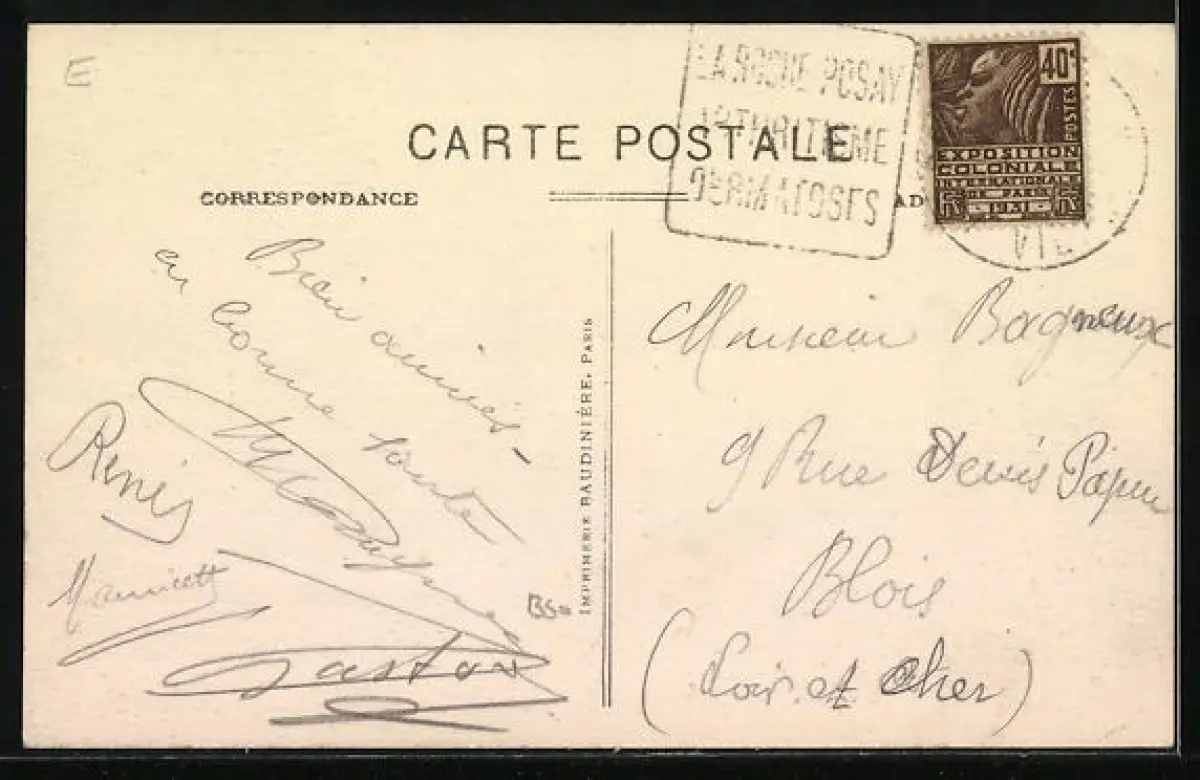 E
LA ROCHE POSAY
ARTHRITISME
DERMATOSES
40c
POSTES
EXPOSITION
COLONIALE
INTERNATIONALE
DE PARIS
1931
CARTE POSTALE
CORRESPONDANCE
AD
VIE
Bien amies-
en bonne santé
René
Gaston
IMPRIMERIE BAUDINIÈRE, PARIS
Monsieur Bagneux
9 Rue Denis Papin
Blois
(Loir et Cher)